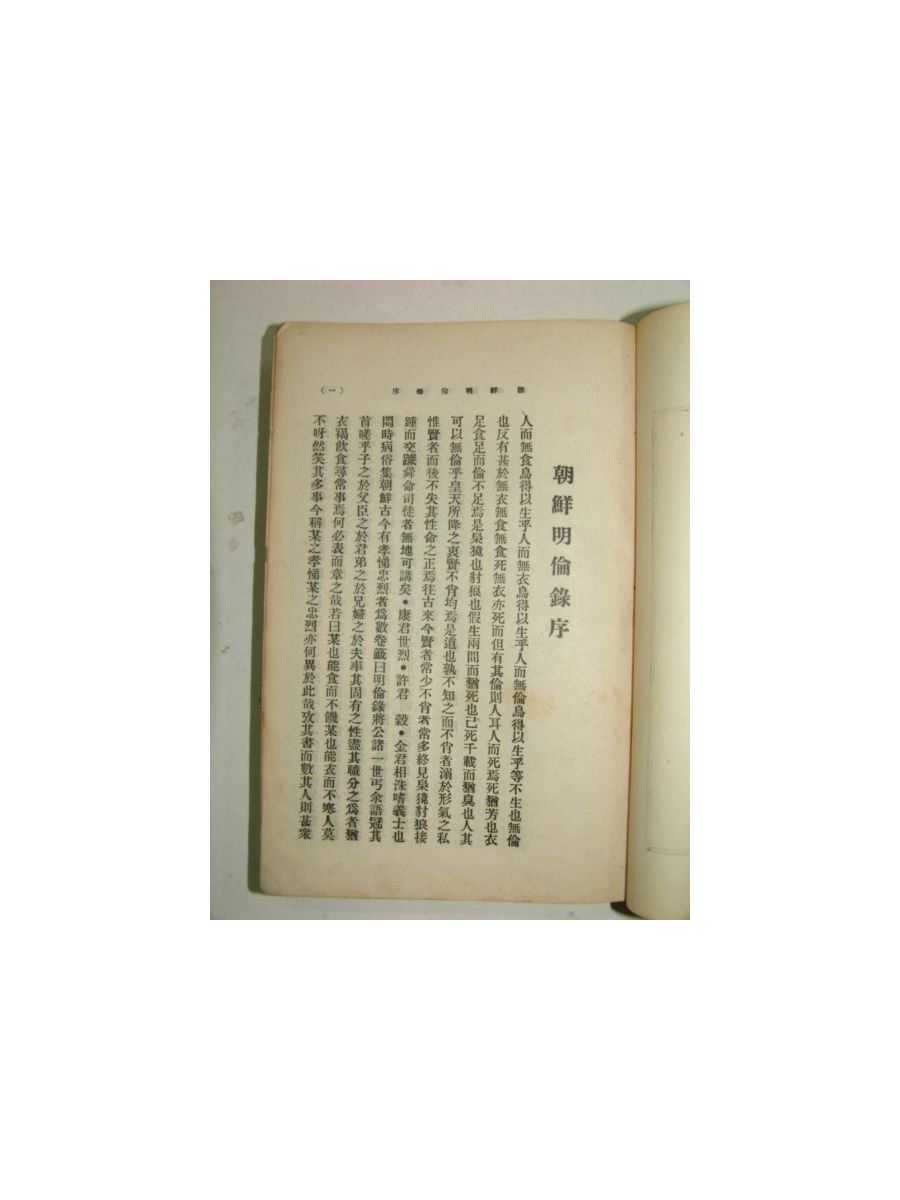 朝鮮明倫錄序
人而無食烏得以生乎人而無衣烏得以生乎人而無倫烏得以生乎等不生也無倫
也反有甚於無衣無食無食死無衣亦死而但有其倫則人耳人而死焉死猶芳也衣
足食足而倫不足焉是梟獍也豺狼也假生兩間而猶死也已死千載而猶臭也人其
可以無倫乎皇天所降之衷賢不肖均焉是道也孰不知之而不肖者溺於形氣之私
惟賢者而後不失其性命之正焉往古來今賢者常少不肖者常多終見梟獍豺狼接
踵而交蹴舜命司徒者無地可講矣•康君世烈•許君 毅•金君相洙嗜義士也
悶時病俗集朝鮮古今有孝悌忠烈者爲數卷籤曰明倫錄將公諸一世丐余語冠其
首嗟乎子之於父臣之於君弟之於兄婦之於夫率其固有之性盡其職分之爲者猶
衣褐飮食尋常事焉何必表而章之哉若曰某也能食而不饑某也能衣而不寒人莫
不呀然笑其多事今稱某之孝悌某之忠烈亦何異於此哉攷其書而數其人則甚衆
朝鮮明倫錄序 (一)